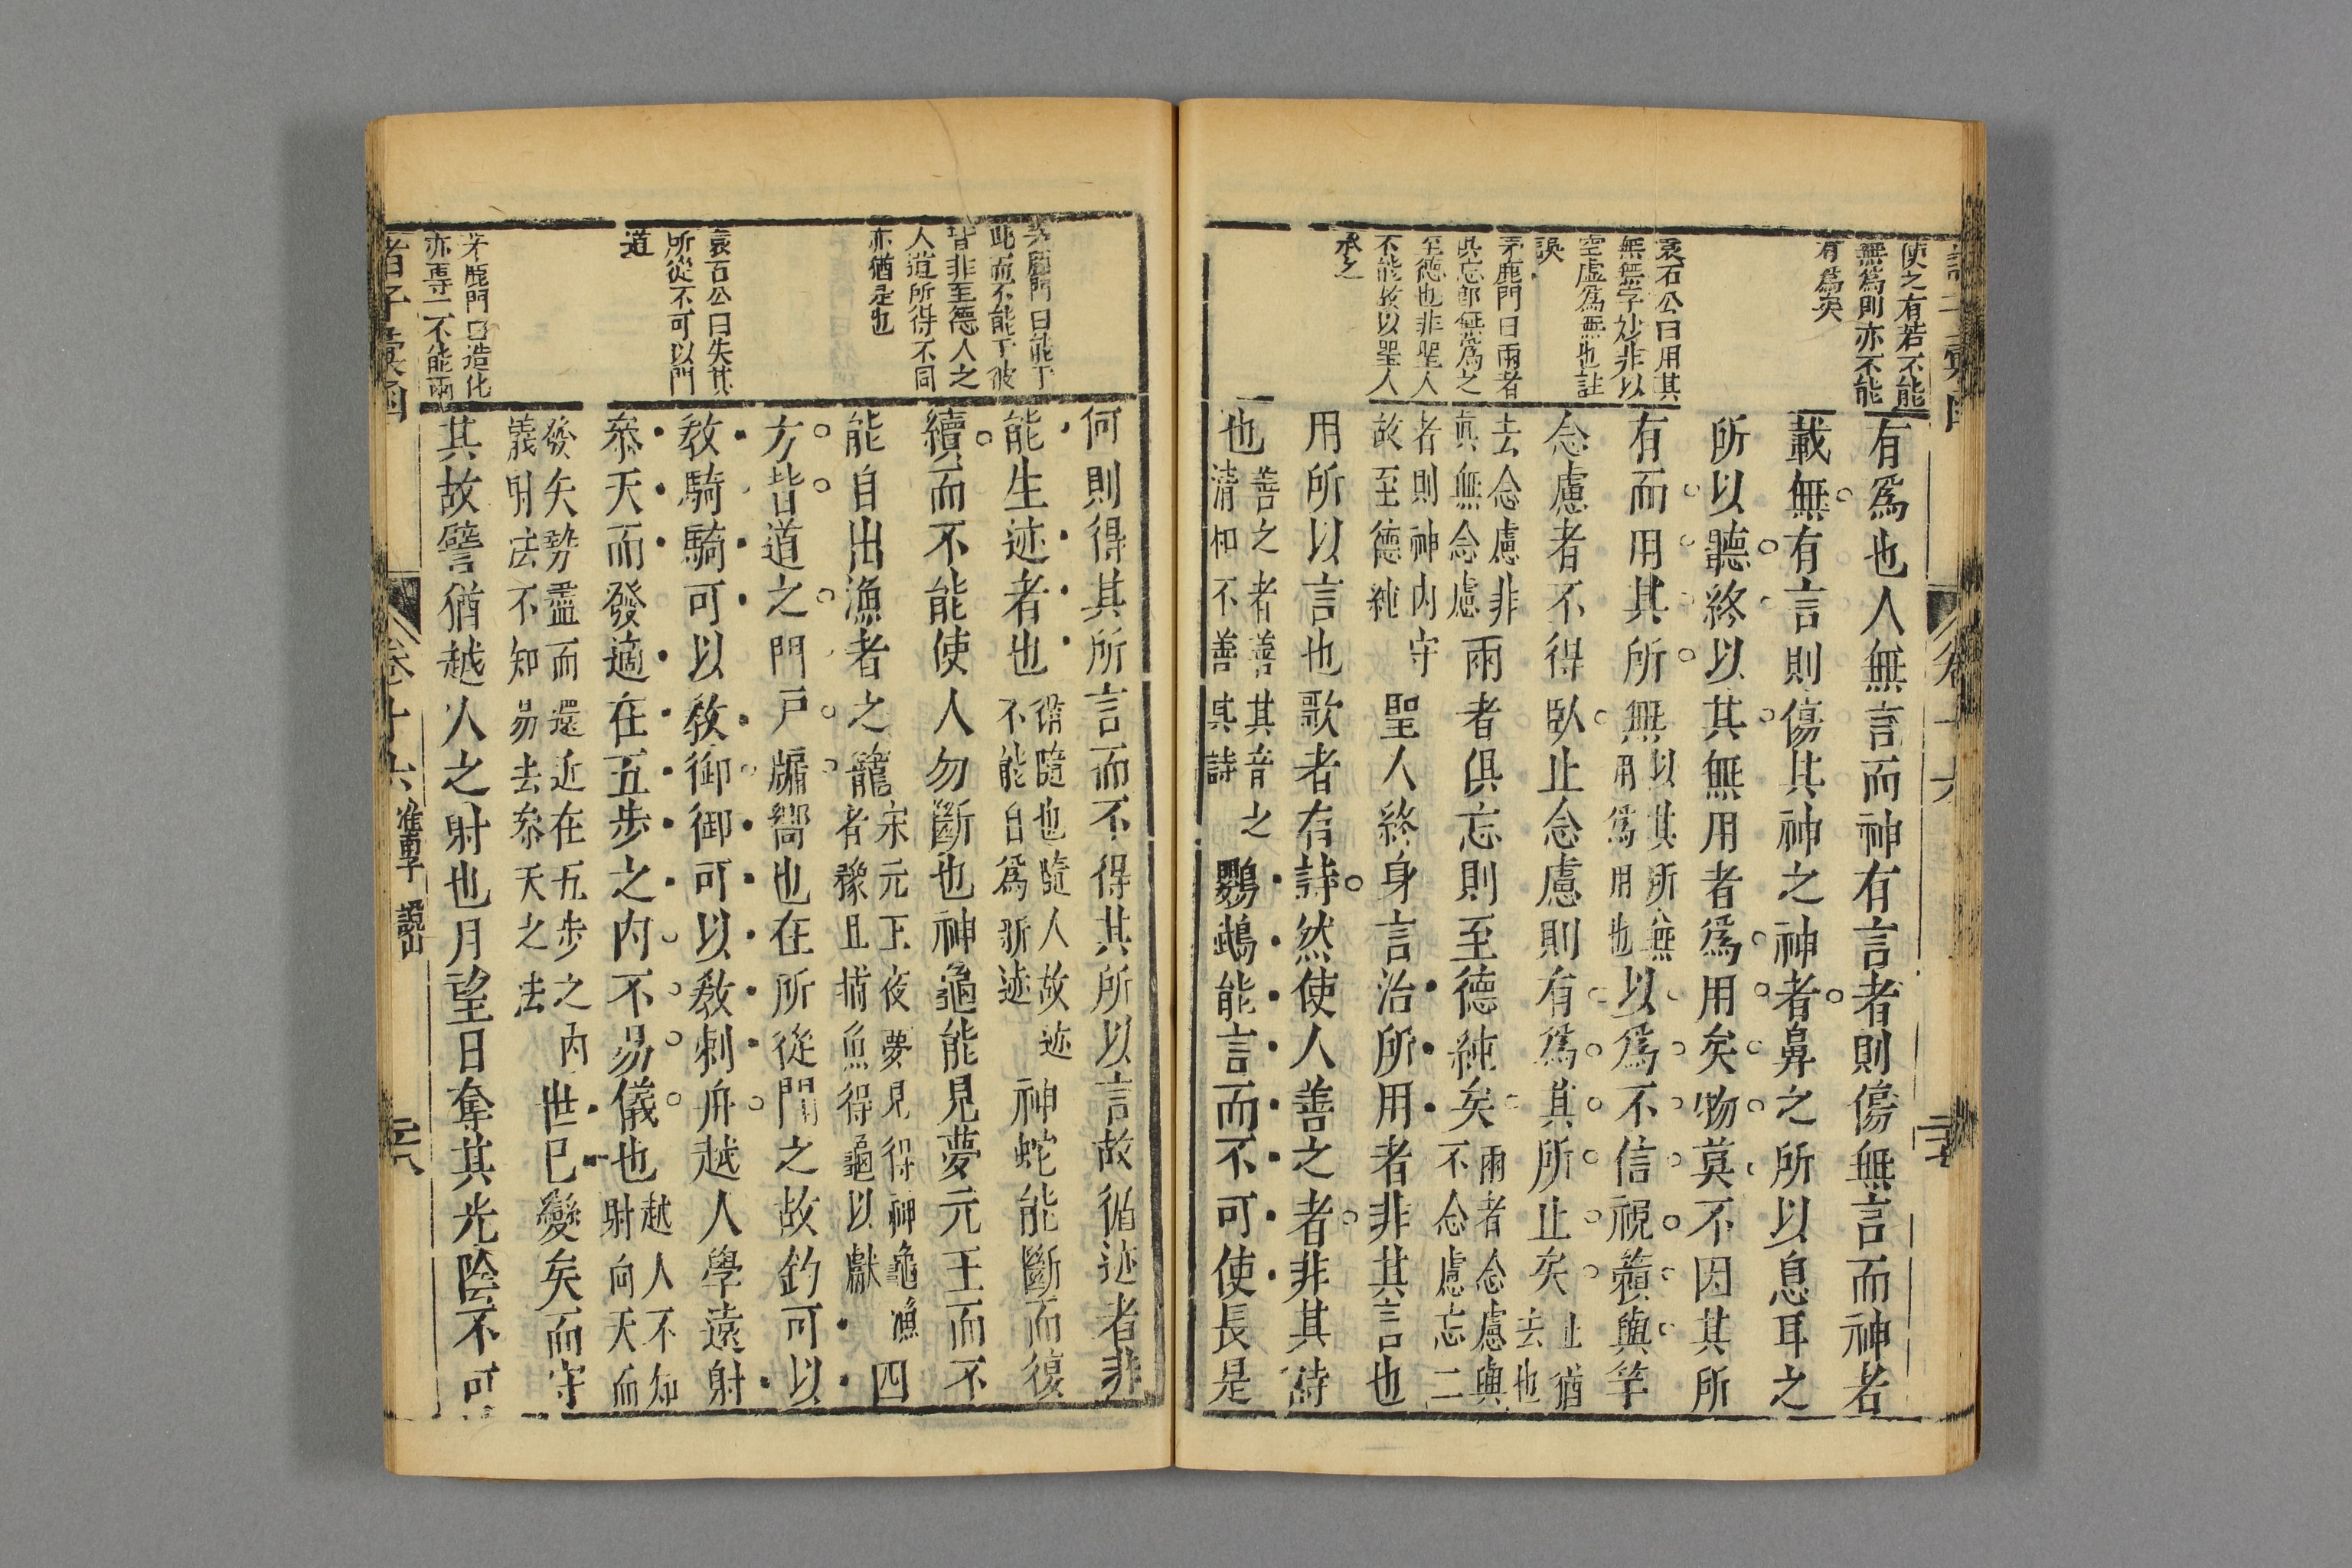 使之有若不能
無爲則亦不能
有爲矣
袁石公曰用其
無無字妙非以
空虛爲無也註
誤
茅鹿門曰兩者
俱忘卽無爲之
至德也非聖人
不能故以聖人
承之
有爲也人無言而神有言者則傷無言而神者
載無有言則傷其神之神者鼻之所以息耳之
所以聽終以其無用者爲用矣物莫不因其所
有而用其所無以其所無用爲用也以爲不信視籟與竽
念慮者不得臥止念慮則有爲其所止矣止猶去也
去念慮非眞無念慮兩者俱忘則至德純矣兩者念慮與不念慮忘二
者則神內守故至德純聖人終身言治所用者非其言也
用所以言也歌者有詩然使人善之者非其詩
也善之者善其音之清和不善其詩鸚鵡能言而不可使長是
茅鹿門曰能于
此而不能于彼
皆非至德人之
人道所得不同
亦猶是也
袁石公曰失其
所從不可以門
道
茅鹿門曰造化
亦專一不能兩
何則得其所言而不得其所以言故循迹者非
能生迹者也循隨也隨人故迹不能自爲新迹神蛇能斷而復
續而不能使人勿斷也神龜能見夢元王而不
能自出漁者之籠宋元王夜夢見得神龜漁者豫且捕魚得龜以獻四
方皆道之門戶牖嚮也在所從闚之故釣可以
敎騎騎可以敎御御可以敎刺舟越人學遠射
叅天而發適在五步之內不易儀也越人不知射向天而
發矢勢盡而還近在五步之內儀射法不知易去叅天之法世巳變矣而守
其故譬猶越人之射也月望日奪其光陰不可
諸子彙函
卷十六
淮南子
說山